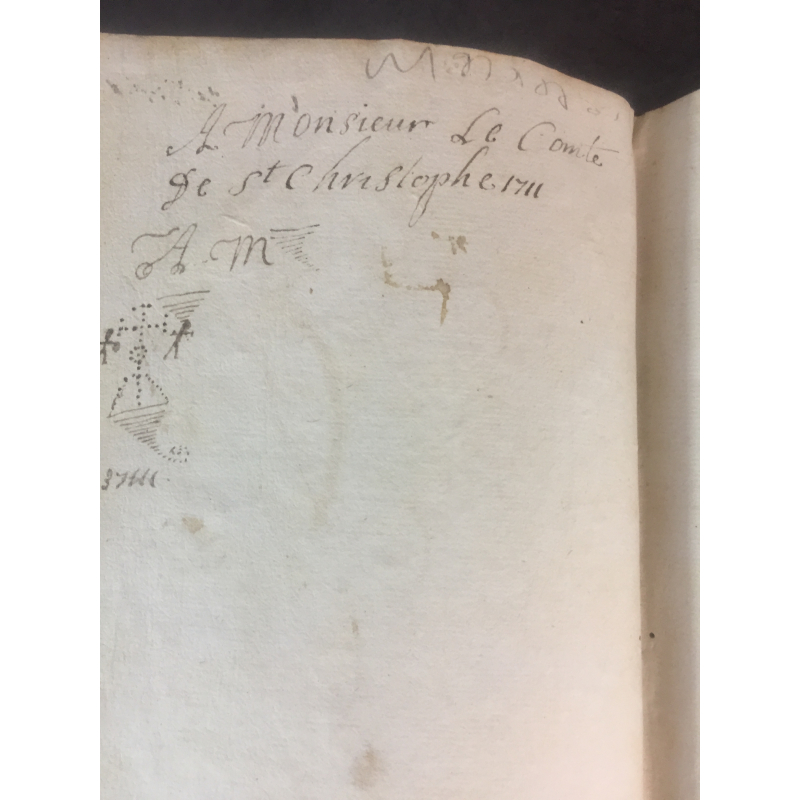 A Monsieur Le Comte
De St Christophe 1711
A M